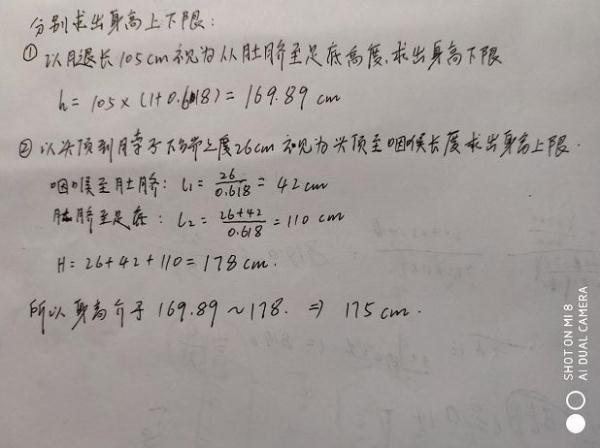 分别求出身高上下限:
① 以腿长105cm视为从肚脐至足底高度,求出身高下限
h = 105×(1+0.618) = 169.89 cm
② 以头顶到脖子下端之度26cm视为头顶至咽喉长度求出身高上限.
咽喉至肚脐: l₁ = 26/0.618 = 42 cm
肚脐至足底: l₂ = (26+42)/0.618 = 110 cm
H = 26+42+110 = 178 cm.
所以身高介于 169.89 ~ 178. ⇒ 175 cm.
SHOT ON MI 8
AI DUAL CAMERA